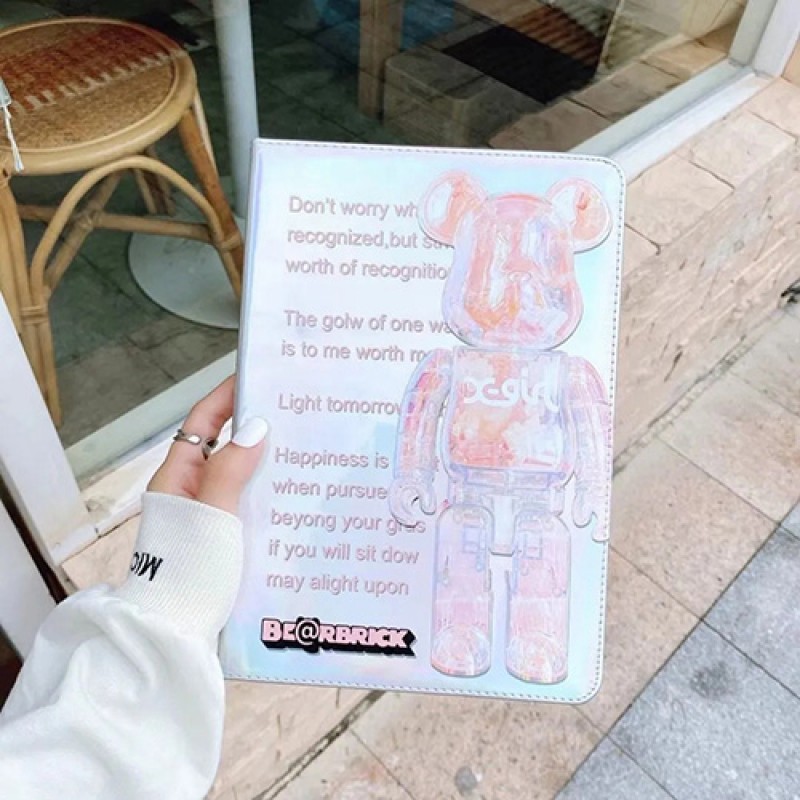 Don't worry wh
recognized,but
worth of recognitio
The golw of one wa
is to me worth m
Light tomorrow
Happiness is
when pursue
beyong your gras
if you will sit dow
may alight upon
X-girl
BE@RBRICK
MICN